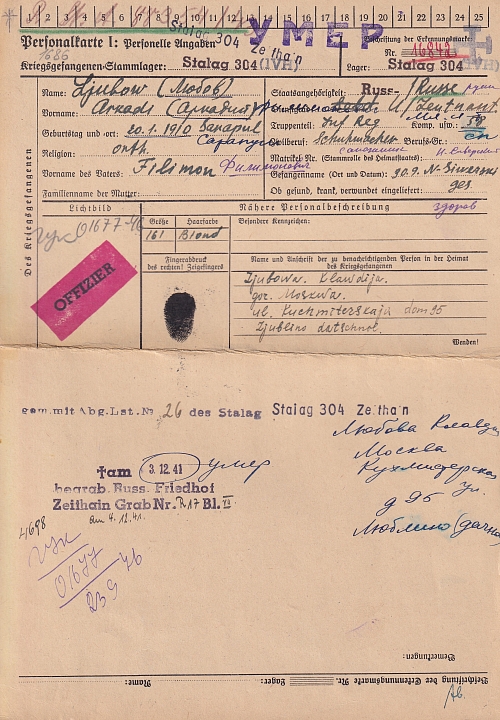 1 2 3 4 5 6 7 8 9 10 11 12 13 14 15 16 17 18 19 20 21 22 23 24 25
Stalag 304
Zeithain
УМЕР
Personalkarte I: Personelle Angaben
Beschriftung der Erkennungsmarke
Nr.
1686
Kriegsgefangenen-Stammlager: Stalag 304 (IVH)
Lager: Stalag 304 (IVH)
Des Kriegsgefangenen
Name: Ljubow (Любов)
Vorname: Arkadi (Аркадий)
Geburtstag und -ort: 20.1.1910 Sarapul
Сарапул
Religion: orth.
Vorname des Vaters: Filimon Филимонович
Familienname der Mutter:
Staatsangehörigkeit: Russe
Russ-
Dienstgrad: U/Leutnant
Truppenteil: Inf Reg Komp. usw.:
Zivilberuf: Schuhmacher Berufs-Gr.:
сапожник
Matrikel Nr. (Stammrolle des Heimatstaates):
Gefangennahme (Ort und Datum): 20.9. N-Siwerski
Ob gesund, krank, verwundet eingeliefert: ges.
здоров
Lichtbild
Nähere Personalbeschreibung
01677-46
OFFIZIER
Größe
Haarfarbe
Besondere Kennzeichen:
161
Blond
Fingerabdruck
des rechten! Zeigefingers
Name und Anschrift der zu benachrichtigenden Person in der Heimat
des Kriegsgefangenen
Ljubowa. Klawdija.
gor. Moskwa.
ul. Kuchmiterskaja dom 95
Ljublino datschnol.
Wenden!
gem. mit Abg.Lst.Nr. 26 des Stalag Stalag 304 Zeithain
Любова Клавдия
Москва
Кухмистерская
ул.
д 95
Люблино (дачна
†am 3.12.41 умер
begrab. Russ. Friedhof
Zeithain Grab Nr. R 17 Bl. VII
am 4.12.41.
4698
01677
239 46
Bemerkungen:
Beschriftung der Erkennungsmarke Nr.
Lager:
Name: